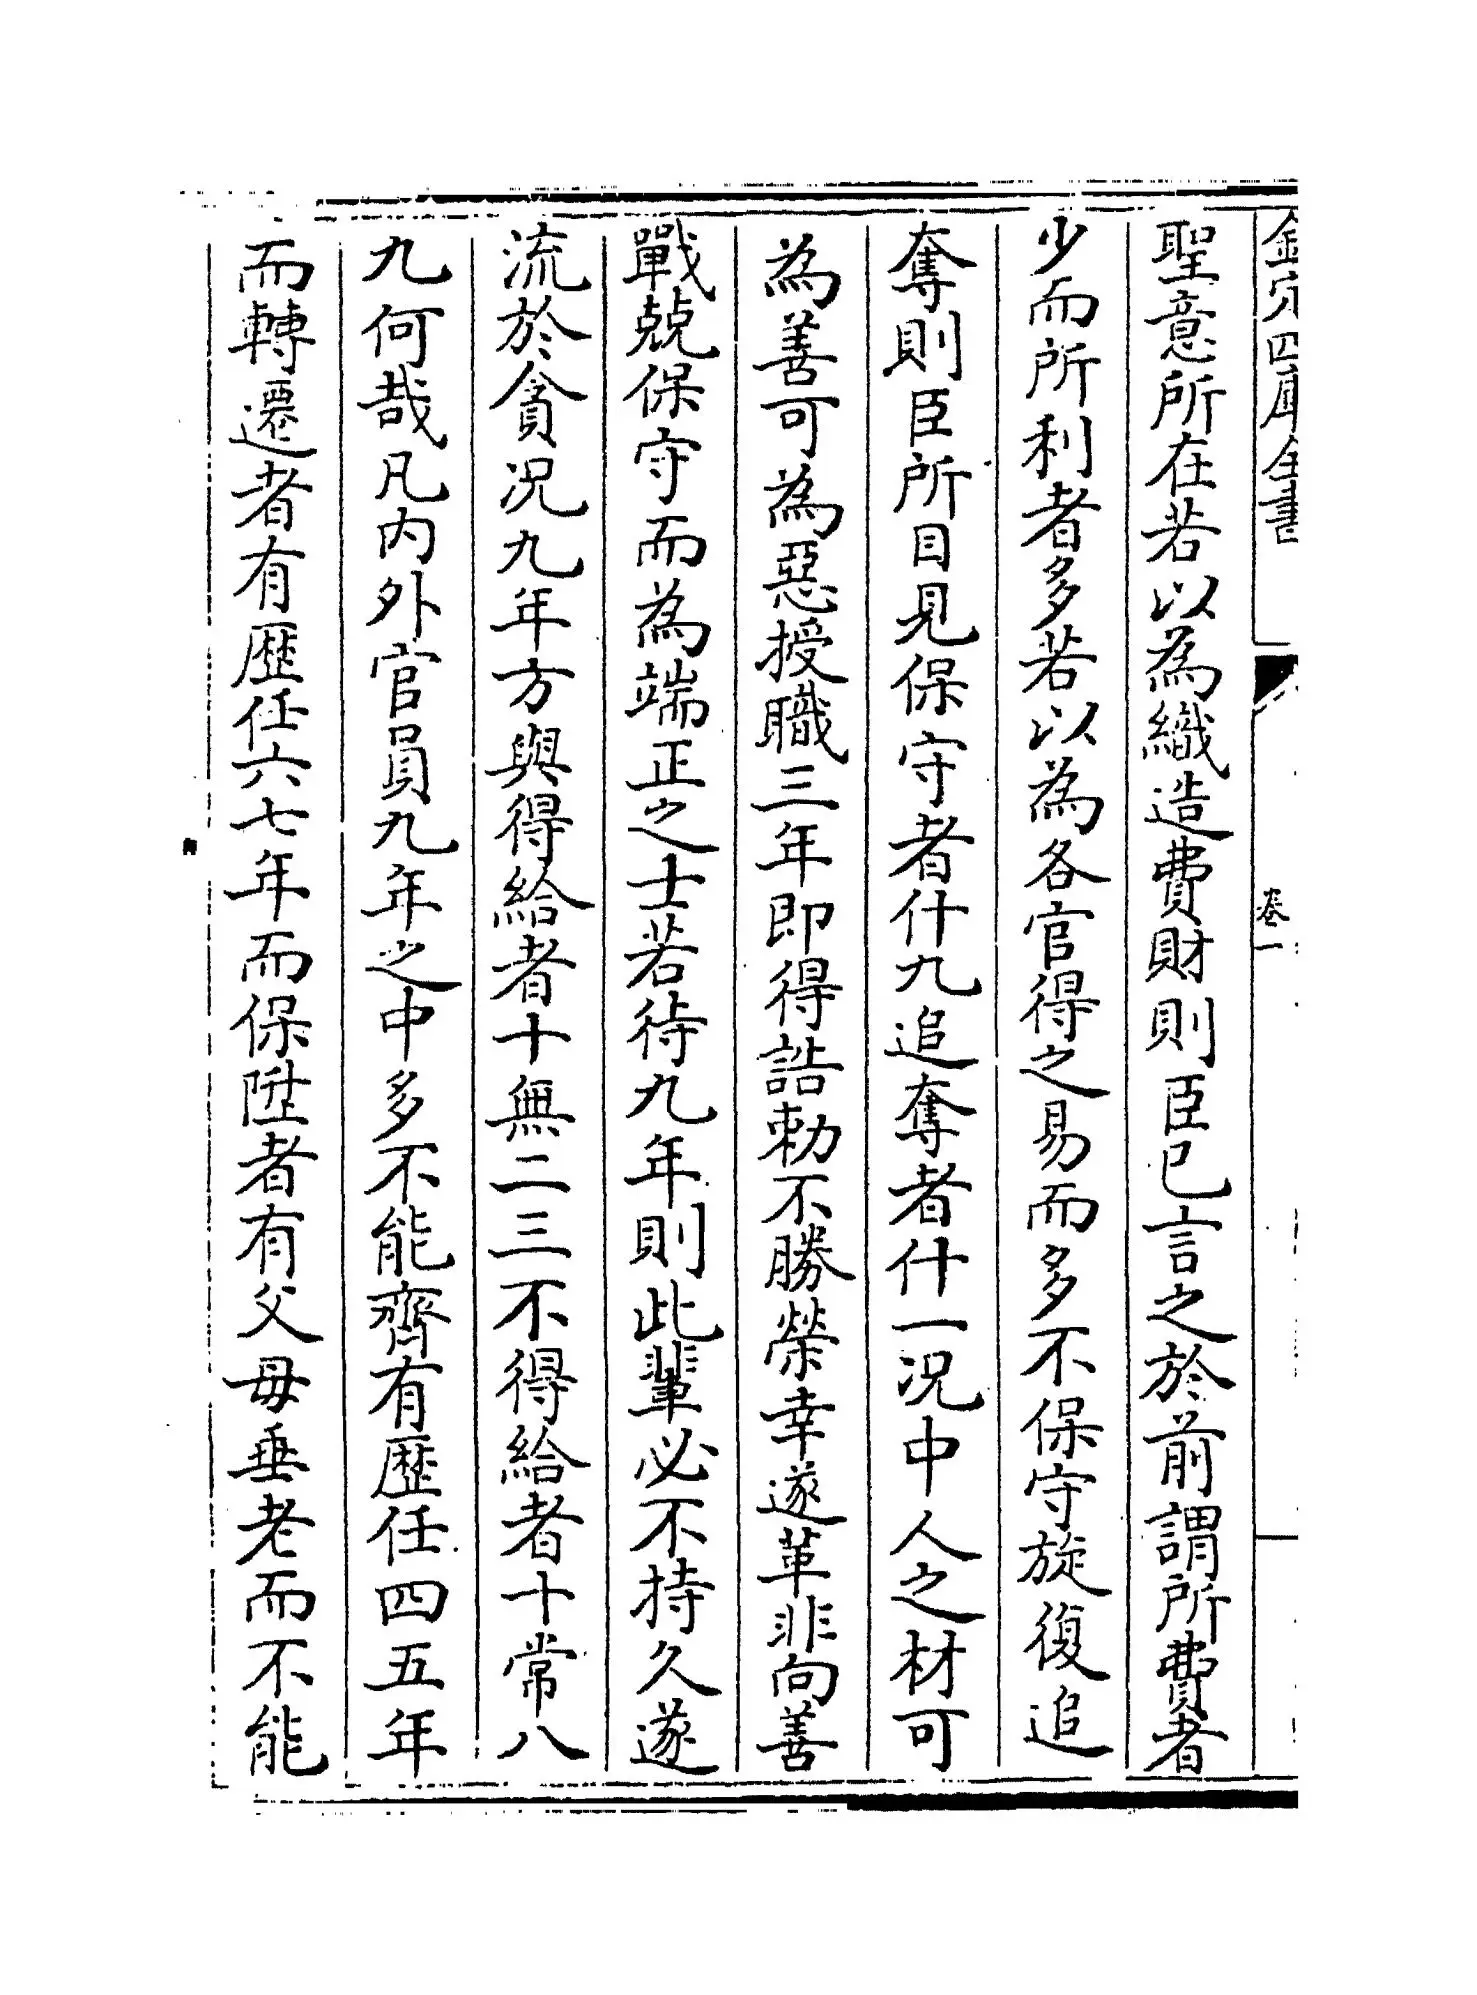 欽定四庫全書
卷一
聖意所在若以為織造費財則臣已言之於前謂所費者
少而所利者多若以為各官得之易而多不保守旋復追
奪則臣所目見保守者什九追奪者什一况中人之材可
為善可為惡授職三年即得誥勅不勝榮幸遂革非向善
戰兢保守而為端正之士若待九年則此輩必不持久遂
流於貪况九年方與得給者十無二三不得給者十常八
九何哉凡内外官員九年之中多不能齊有歴任四五年
而轉遷者有歴任六七年而保陞者有父母垂老而不能